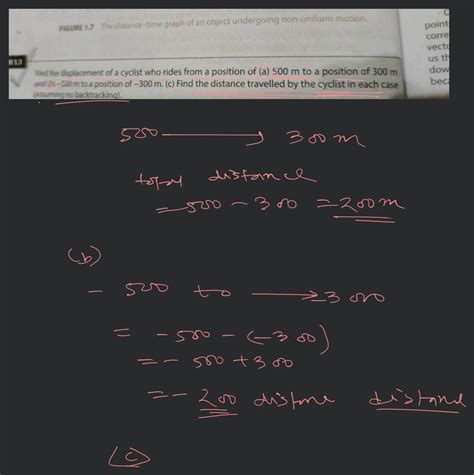 FIGURE 1.7 The distance-time graph of an object undergoing non-uniform motion.
point
corre
vecto
us th
dow
beca
Find the displacement of a cyclist who rides from a position of (a) 500 m to a position of 300 m
and (b) –500 m to a position of –300 m. (c) Find the distance travelled by the cyclist in each case
(assuming no backtracking).
500 → 300 m
total distance
= 500 - 300 = 200 m
(b)
- 500 to → -300
= -500 - (-300)
= - 500 + 300
= - 200 distance
(c)